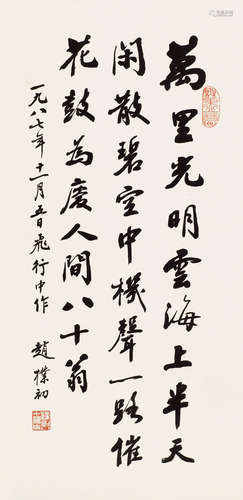 萬里光明雲海上半天
閑散碧空中機聲一路催
花鼓為慶人間八十翁
一九八七年十一月五日飛行中作
趙樸初